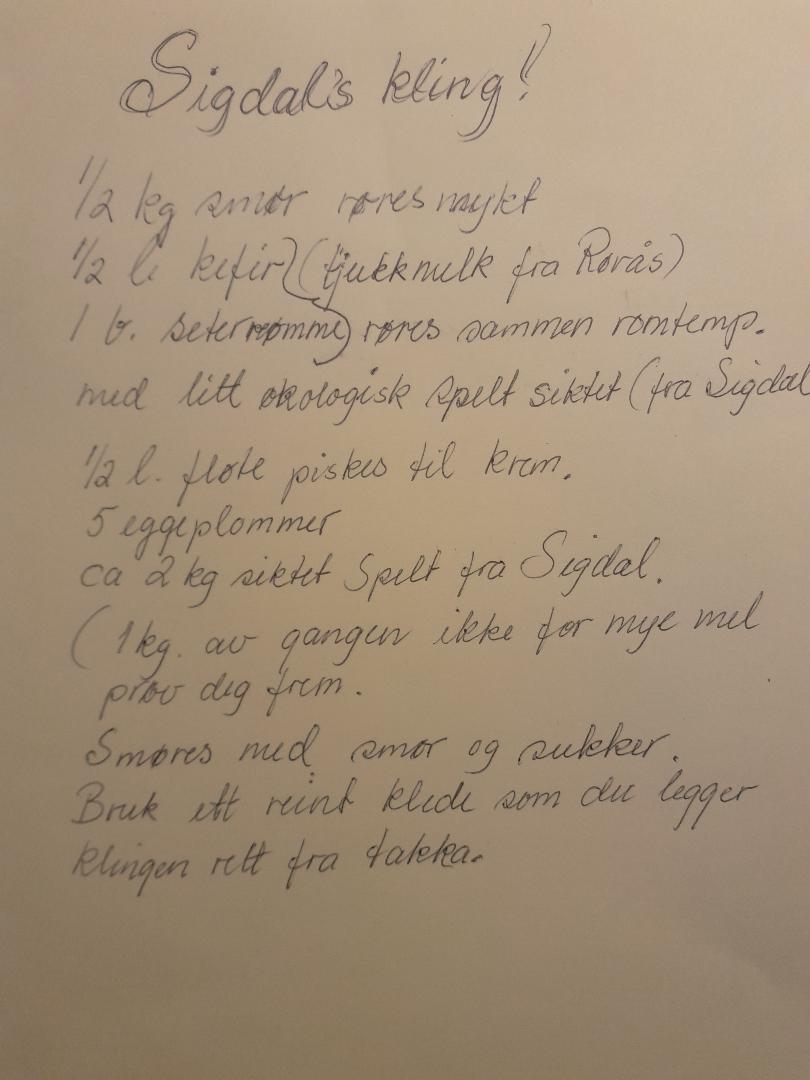 Sigdal's kling!
1/2 kg smør røres mykt
1/2 l. kefir (tjukkmelk fra Rørås)
1 b. seterrømme) røres sammen romtemp.
med litt økologisk spelt siktet (fra Sigdal
1/2 l. fløte piskes til krem.
5 eggeplommer
ca 2 kg siktet Spelt fra Sigdal.
(1 kg. av gangen ikke for mye mel
prøv deg frem.
Smøres med smør og sukker.
Bruk ett reint klede som du legger
klingen rett fra takka.